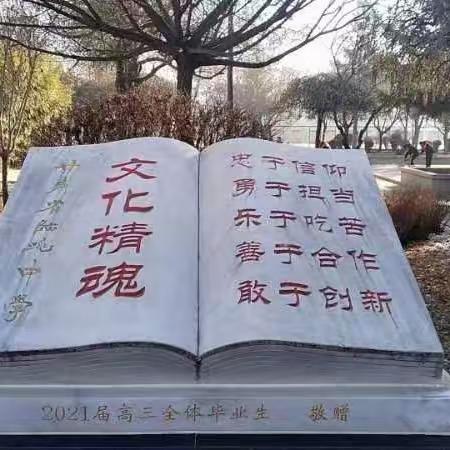 甘肃省临洮中学
文化精魂
忠于信仰
勇于担当
乐于吃苦
善于合作
敢于创新
2021届高三全体毕业生 敬赠